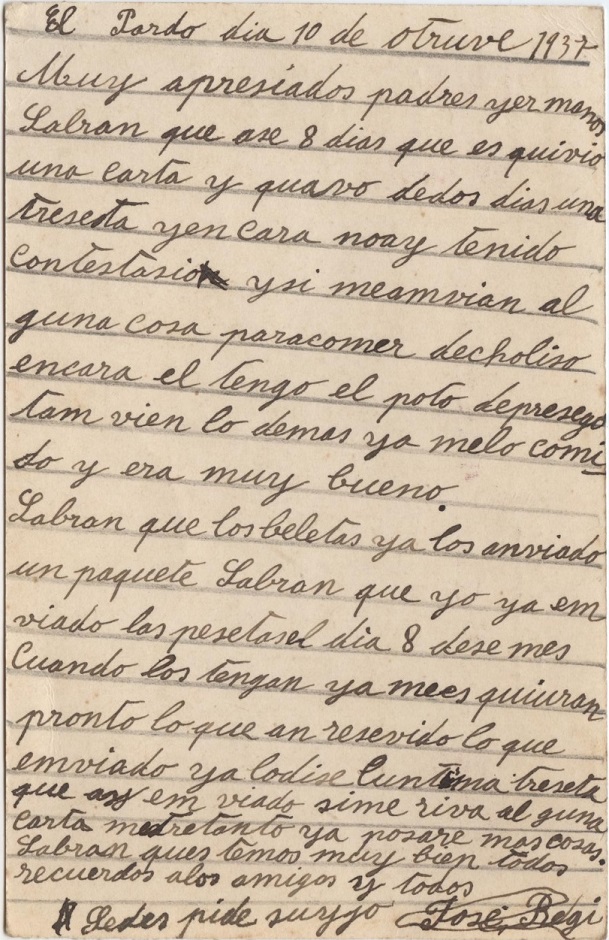 El Pardo dia 10 de otruve 1937
Muy apresiados padres yermanos
Sabran que ase 8 dias que es quivio
una carta y quavo dedos dias una
treseta yencara noay tenido
contestasion ysi meamvian al
guna cosa paracomer decholiso
encara el tengo el poto depresego
tam vien lo demas ya melo comi
do y era muy bueno.
Sabran que losbeletas ya los anviado
un paquete Sabran que yo ya em
viado las pesetasel dia 8 dese mes
Cuando los tengan ya mees quiuran
pronto lo que an resevido lo que
emviado ya lodise luntima treseta
que ay em viado sime riva al guna
carta metretanto ya posare mas cosas.
Sabran ques temos muy bien todos
recuerdos alos amigos y todos
Sedes pide suryjo José Begi